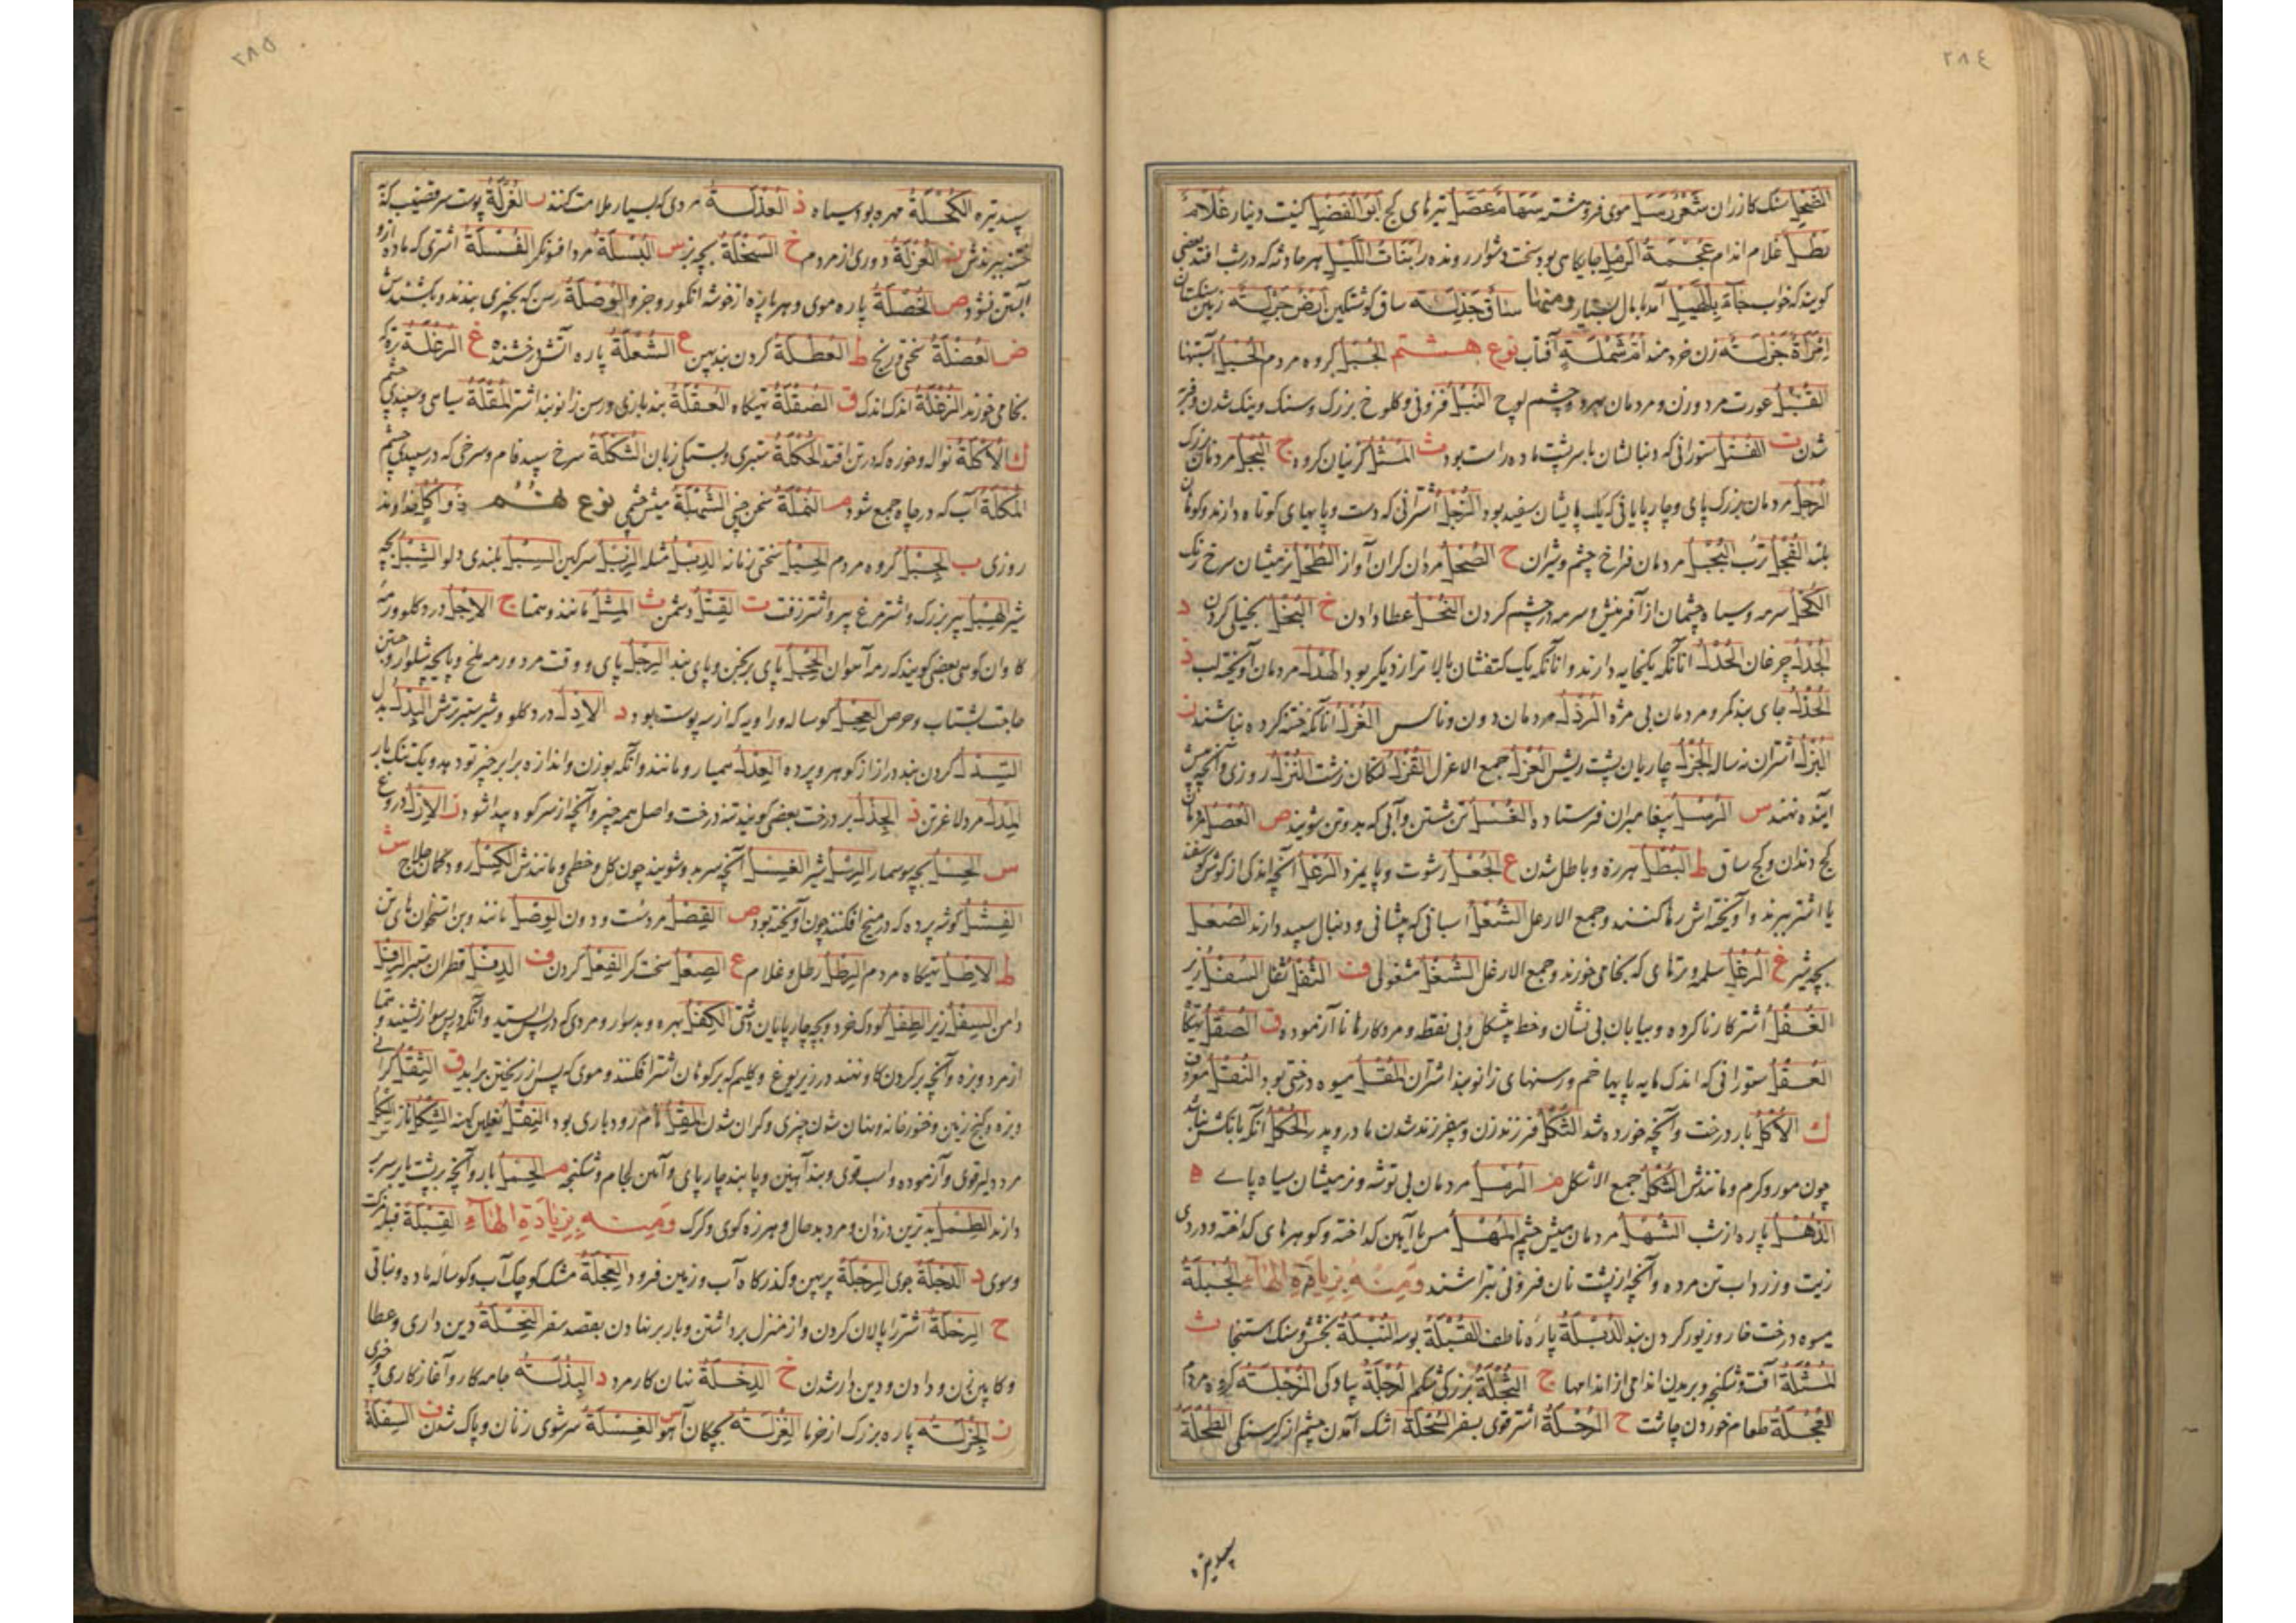 ٢٨٤
الضحل سنک کازران شعر رسل موی فروهشته سهام عصل تیرهای کج ابو الفضل کنیت دینار غلام
رطل غلام نرم اندام عجمة الرمل جایکاهی بود سخت دشوار رونده را بنات اللیل هر حادثه که در شب افتد بعضی
کویند که خواب جاء بالحیل آمد با مال بسیار ومنها ساق خذلة ساق کوشتکین ارض جزلة زمین سنکستان
امراة جزلة زن خردمند ام شملة آفتاب نوع هشتم الجبل کروه مردم الحبل آبستنها
القبل عورت مرد و زن و مردمان بهر دو چشم لوچ النبل فزونی و کلوخ بزرک و سنک و نیک شدن و فربه
شدن ت الفتل ستورانی که دنبالشان با سر پشت ماده راست بود ث المثل کزینان کروه ج البجل مردمان بزرک
الرجل مردمان بزرک پای و چارپایانی که یک پایشان سفید بود الزجل اشترانی که دست و پایهای کوتاه دارند و کوتاه
بلند الفجل ترب النجل مردمان فراخ چشم و شیران ح الصحل مردان کران آواز الطحل زمیشان سرخ رنک
الکحل سرمه و سیاه چشمان از آفرینش و سرمه در چشم کردن النحل عطا دادن خ البخل بخیلی کردن د
الجدل چرغان الحدل آنانکه یکخایه دارند و آنانکه یک کتفشان بالاتر از دیکر بود الهدل مردمان آویخته لب ذ
الحذل جای بند کمر و مردمان بی مژه الرذل مردمان دون و ناکس الغرل آنانکه ختنه کرده نباشند ز
البزل اشتران نه ساله الجزل چارپایان پشت ریش العزل جمع الاعزل القزل لنکان زشت النزل روزی و آنچه پیش
آینده نهند س الرسل پیغامبران فرستاده الغسل تن شستن و آبی که بدو تن شویند ص العصل مردمان
کج دندان و کج ساق ط البطل هرزه و باطل شدن ع الجعل رشوت و پایمزد الرعل آنچه اندکی از کوش کوسفند
یا اشتر ببرند و آویخته اش رها کنند و جمع الارعل الشعل اسبانی که پیشانی و دنبال سپید دارند الصعل
بچه شیر غ الرغل سلمه و برتهای که بخامی خورند و جمع الارغل الشغل مشغولی ف الثفل ثقل السفل زیر
الغفل اشتر کار ناکرده و بیابان بی نشان و خط مشکل و بی نقطه و مرد کارها نا آزموده ق الصقل تهیکاه
العقل ستورانی که اندک مایه پایها خم و رسنهای زانو بند اشتران المقل میوه درختی بود النقل معروف
ك الاکل بار درخت و آنچه خورده شد الثکل فرزند زن و بی فرزند شدن مادر و پدر الحکل آنکه بانکش نباشد
چون مور و کرم و مانندش الشکل جمع الاشکل م الرمل مردمان بی توشه و نرمیشان سیاه پای ه
الذهل پاره از شب الشهل مردمان میش چشم المهل مس یا آهن کداخته و کوهرهای کداخته و دردی
زیت و زرداب تن مرده و آنچه از پشت نان فرونی تراشند ومنه بزیادة الهاء الحبلة
میوه درخت خار و زیور کردن بند الدبلة پاره ناطف القبلة بوسه النبلة بخشش و سنک استنجا ث
المثلة آفت و شکنجه و بریدن اندامی از اندامها ج البجلة بزرکی شکم الرجلة پیادکی الزجلة کروه مردم
العجلة طعام خوردن چاشت ح الرحلة اشتر قوی بسفر السحلة اشک آمدن چشم از کرسنکی الطحلة
سپید تیره
٢٨٥
سپید تیره الکحلة مهره بود سیاه ذ العذلة مردی که بسیار ملامت کنند ر الغرلة پوست سر قضیب که
ختنه ببرندش ز العزلة دوری از مردم خ السخلة بچه بز س البسلة مزد افسونکر الفسلة اشتری که ماده ازو
آبستن نشود ص الخصلة پاره موی و هر پاره از خوشه انکور و جز او الوصلة رسن که بچیزی بندند و بکشندش
ض العضلة سختی و رنج ط العطلة کردن بند پهن ع الشعلة پاره آتش درخشنده غ الرغلة تره که
بخامی خورند الزغلة اندک اندک ق الصقلة تهیکاه العقلة بند بازی و رسن زانو بند اشتر المقلة سیاهی و سپیدی چشم
ك الاکلة نواله و خوره که در تن افتد الحکلة ستبری و بستکی زبان الشکلة سرخ سپید فام و سرخی که در سپیدی چشم
المکلة آب که در چاه جمع شود م النملة سخن چینی الشهلة میش چشمی نوع نهم ذو اکل خداوند
روزی ب الجبل کروه مردم الحبل سختی زمانه الدبل مثله الزبل سرکین السبل بلندی دلو الشبل بچه
شیر الهبل پیر بزرک و اشتر مرغ پیر و اشتر زفت ت القتل دشمن ث المثل مانند و همتا ج الاجل درد کلو و رمه
کاوان کوهی بعضی کویند که رمه آهوان الحجل پای برنجن و پای بند الرجل پای و وقت مرد و رمه ملخ و پایچه شلوار و جستن
حاجت بشتاب و حرص العجل کوساله و راویه که از سه پوست بود د الادل درد کلو و شیر ستبر ترش البدل بدل
السدل کردن بند دراز از کوهر و پرده العدل همیار و مانند و آنکه بوزن و اندازه برابر چیز تو دهد و یک تنک بار
المدل مرد لاغر تن ذ الجذل بر درخت بعضی کویند تنه درخت و اصل همه چیز و آنچه از سر کوه پیدا شود ز الازل دروغ
س الحسل بچه سوسمار الرسل شیر الغسل آنچه سر بدو شویند چون کل و خطمی و مانندش الکسل رود کمان حلاج ش
الفشل کوشه پرده که در میخ افکنند چون آویخته بود ص القصل مرد سست و دون الوصل مانند و بن استخوانهای تن
ط الاطل تهیکاه مردم الرطل رطل و غلام ع الصعل سخت کر الفعل کردن ف الدفل قطران ستبر الرفل
دامن السفل زیر الطفل کودک خرد و بچه چارپایان دشتی الکفل بهره و بد سوار و مردی که در پس ایستد و آنکه در پس سوار نشیند و همتا
از مرد و بزه و آنچه بر کردن کاو نهند در زیر یوغ و کلیم که بر کوهان اشتر افکنند و موی که پس از ریختن برآید ق الثقل کرانی
و بزه و کنج زمین و خنور خانه و نهان شدن چیزی و کران شدن المقل نام رودباری بود النقل نعلین کهنه الشکل ناز النکل
مرد دلیر قوی و آزموده و اسب قوی و بند آهنین و پابند چارپای و آهن لجام و شکنجه م الحمل بار و آنچه بر پشت یا بر سر
دارند الطمل بدترین دزدان و مرد بد حال و هرزه کوی و کرک ومنه بزیادة الهاء القبلة قبله مزکت
و سوی د الدجلة جوی الرجلة پرپهن و کذرکاه آب و زمین فرود العجلة مشک کوچک آب و کوساله ماده و نباتی
ح الرحلة اشتر را پالان کردن و از منزل برداشتن و بار بر نهادن بقصد سفر النحلة دین داری و عطا
و کابین زن و دادن و دین دار شدن خ الدخلة نهان کار مرد د البذلة جامه کار و آغاز کاری و چیزی
ز الجزلة پاره بزرک از خرما الغزلة بچکان آهو س الغسلة سرشوی زنان و پاک شدن ف السفلة